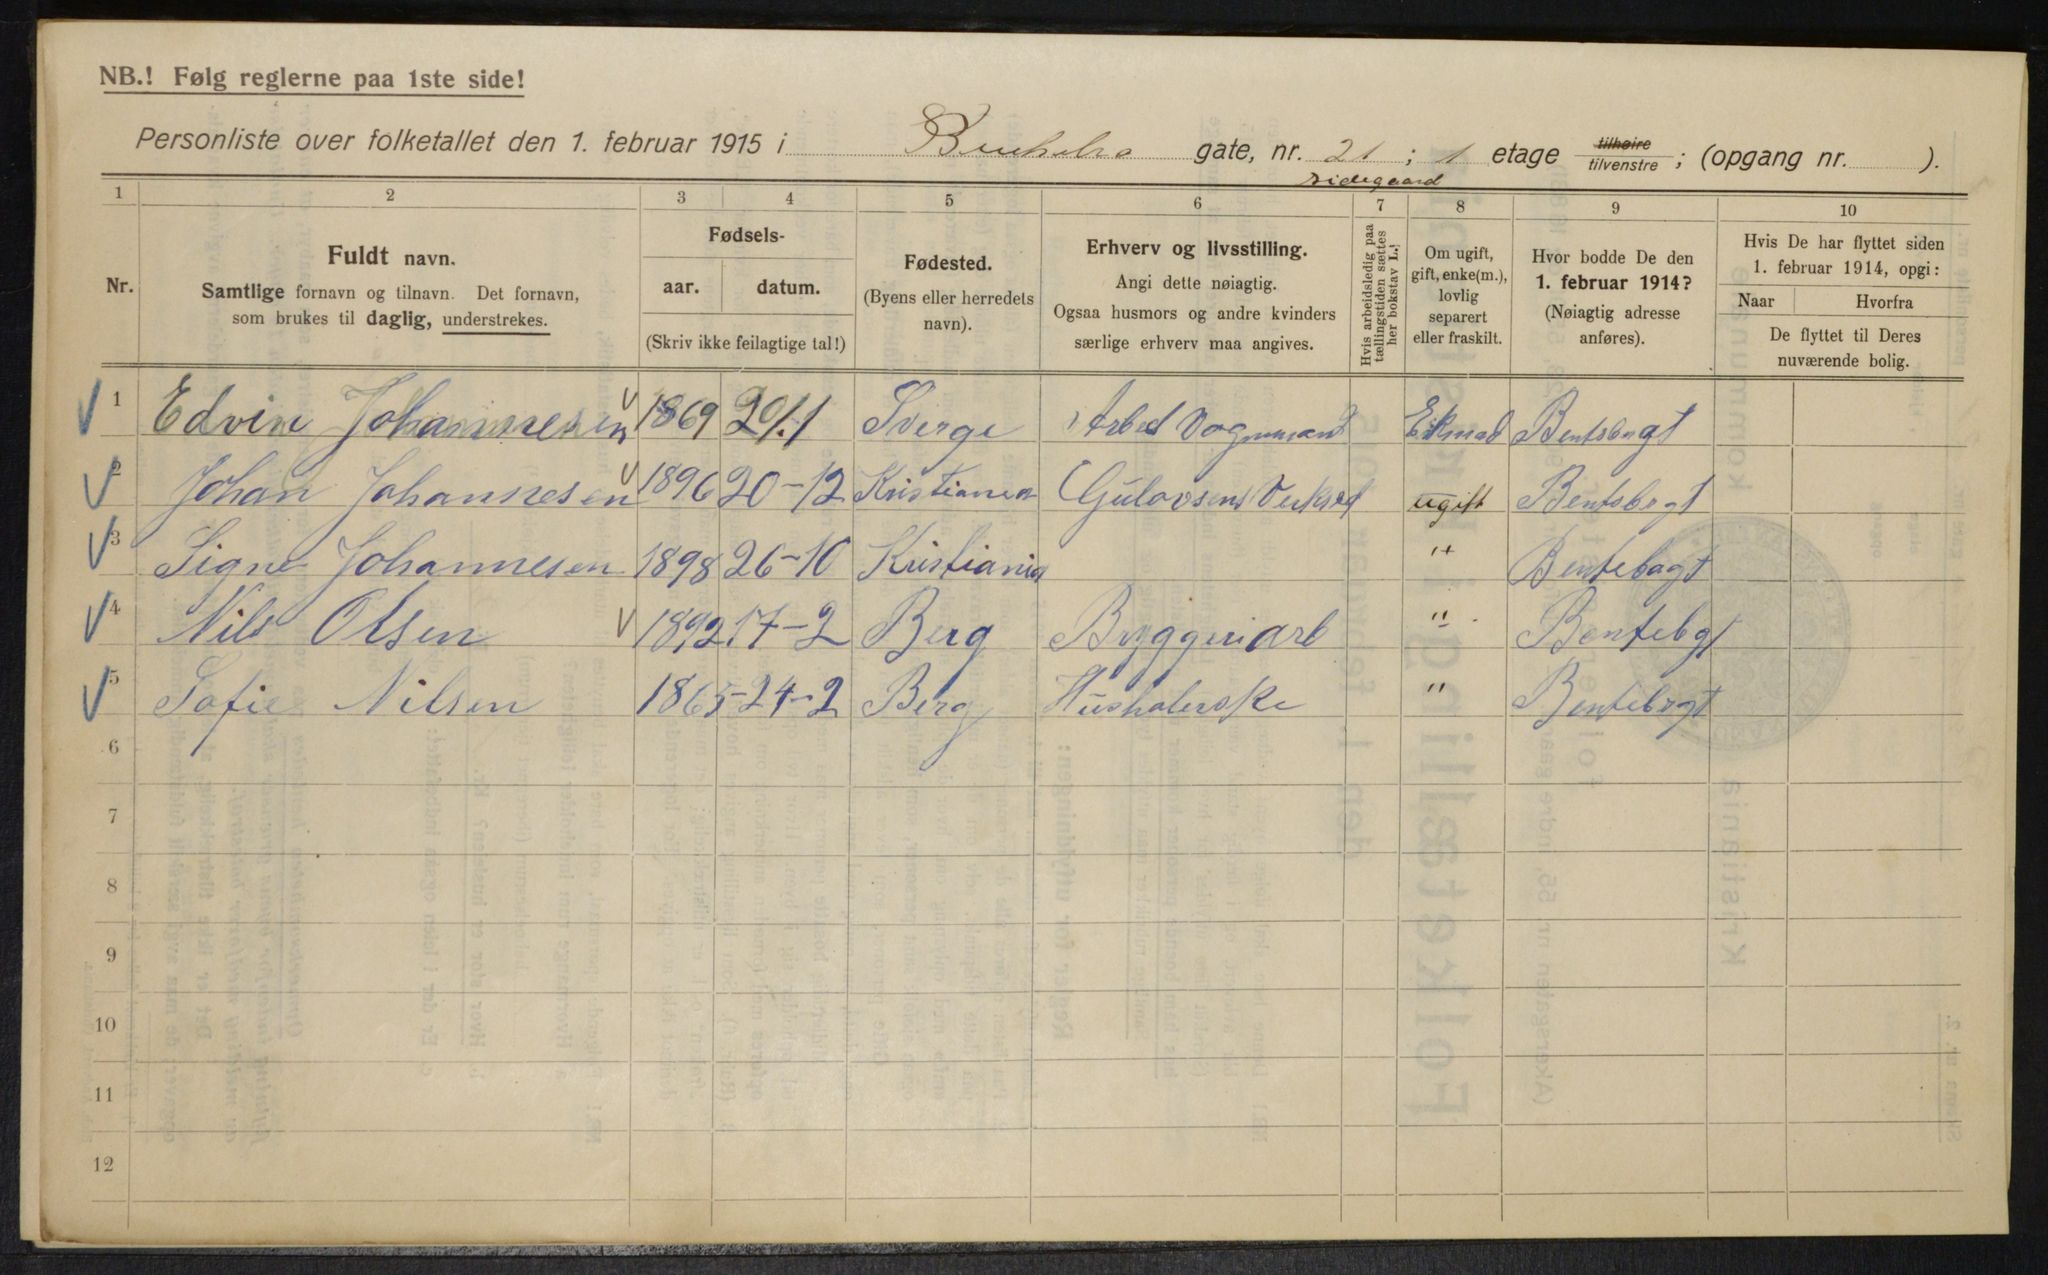 NB.! Følg reglerne paa 1ste side!
Personliste over folketallet den 1. februar 1915 i gate, nr. 21 ; 1 etage tilhøire tilvenstre ; (opgang nr. ).
sidegaard
1 2 3 4 5 6 7 8 9 10
Nr.
Fuldt navn.
Samtlige fornavn og tilnavn. Det fornavn,
som brukes til daglig, understrekes.
Fødsels-
aar. datum.
(Skriv ikke feilagtige tal!)
Fødested.
(Byens eller herredets
navn).
Erhverv og livsstilling.
Angi dette nøiagtig.
Ogsaa husmors og andre kvinders
særlige erhverv maa angives.
Hvis arbeidsledig paa
tællingstiden sættes
her bokstav L.!
Om ugift,
gift, enke(m.),
lovlig
separert
eller fraskilt.
Hvor bodde De den
1. februar 1914?
(Nøiagtig adresse
anføres).
Hvis De har flyttet siden
1. februar 1914, opgi:
Naar Hvorfra
De flyttet til Deres
nuværende bolig.
1 Edvin Johannesen 1869 20/1 Sverge Arbed Vognmand Bentsbrgt
2 Johan Johannesen 1896 20-12 Kristiania ugift Bentsbrgt
3 Signe Johannesen 1898 26-10 Kristiania " Bentebagt
4 Nils Olsen 1892 17-2 Berg Bryggeriarb " Bentebgt
5 Sofie Nilsen 1865-24-2 Berg Husholerske " Bentebrgt
6
7
8
9
10
11
12